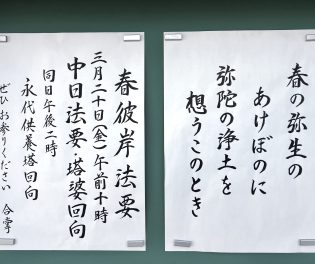 春の弥生の
あけぼのに
弥陀の浄土を
想うこのとき
春彼岸法要
三月二十日(金)午前十時
中日法要 塔婆回向
同日午後二時
永代供養塔回向
ぜひ お参りください 合掌